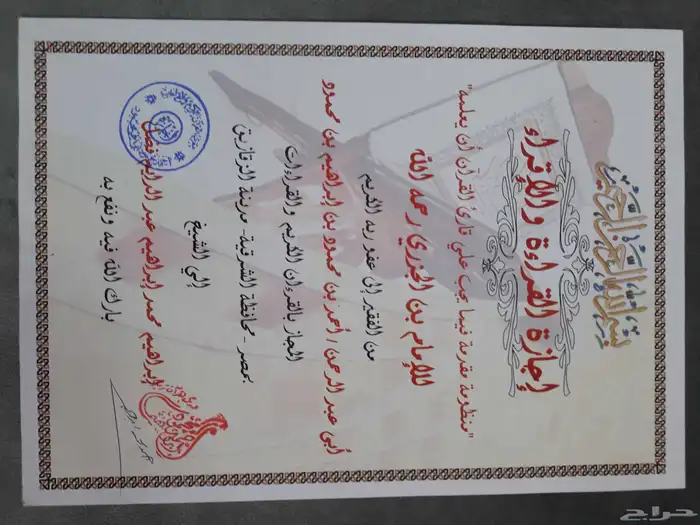 بسم الله الرحمن الرحيم
إجازة القراءة والإقراء
"منظومة مقدمة فيما يجب علي قارئ القرآن أن يعلمه"
للإمام بن الجزري رحمه الله
من الفقير إلى عفو ربه الكريم
أبى عبد الرحمن / أحمد بن محمدود بن إبراهيم بن محمدود
المجاز بالقرءان الكريم والقراءات
بمصر - محافظة الشرقية - مدينة الزقازيق
إلي الشيخ
إبراهيم محمد إبراهيم عبد الرازق
بارك الله فيه ونفع به
حراج